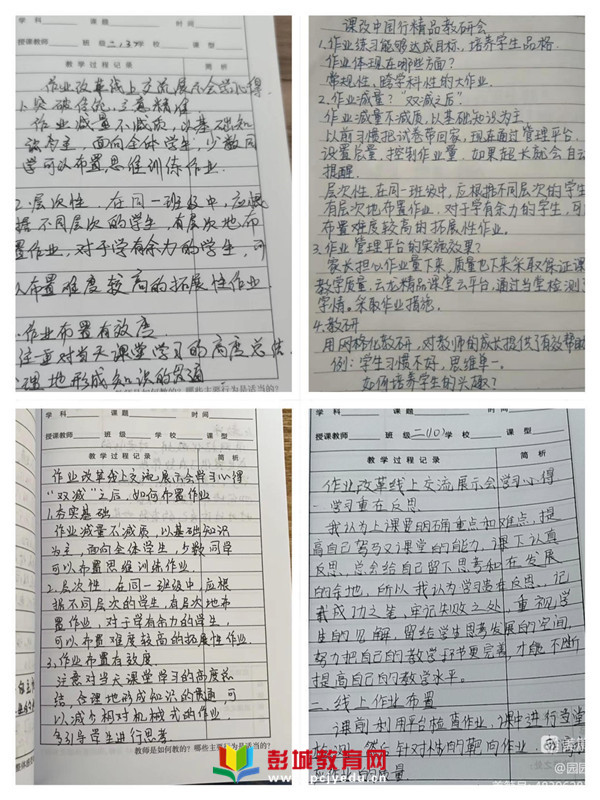 学科 课题 时间
授课教师 班级 二、3 学校 课型
教学过程记录 简析
作业改革线上交流展示会学心得
作业减量不减质,以基础知
识为主,面向全体学生,少数同
学可以布置思维训练作业.
2.层次性.在同一班级中,应根
据不同层次的学生,有层次地布
置作业,对于学有余力的学生,可
以布置难度较高的拓展性作业
作业布置有效度
注意对当天课堂学习的高度总结
理地形成知识的贯通
课改中国行精品教研会
1.作业练习能够达成目标,培养学生品格.
作业体现在哪些方面?
常规性、跨学科性的大作业.
2.作业减量?"双减之后".
作业减量不减质,以基础知识为主.
以前习惯把试卷带回家,现在通过管理平台.
设置总量,控制作业量.如果超长就会自动
提醒.
层次性.在同一班级中,应根据不同层次的学生
有层次地布置作业.对于学有余力的学生,可
布置难度较高的拓展性作业.
3.作业管理平台的实施效果?
家长担心作业量下来,质量也下来采取保证课
教学质量.云龙精品课堂云平台,通过当堂检测了
学情.采取作业措施.
4.教研
用网格化教研,对教师的成长提供了有效帮助
例:学生习惯不好,思维单一.
如何培养学生的兴趣?
学科 课题 时间
授课教师 班级 学校 课型
教学过程记录 简析
作业改革线上交流展示会学习心得
"双减"之后,如何布置作业
1.夯实基础
作业减量不减质,以基础知识
为主,面向全体学生,少数同学
可以布置思维训练作业.
2.层次性.在同一班级中,应根
据不同层次的学生,有层次地布
置作业,对于学有余力的学生,
可以布置难度较高的拓展性作业.
3.作业布置有效度.
注意对当天课堂学习的高度总
结,合理地形成知识的贯通,可
以减少相对机械式的作业
多引导学生进行思考.
教师是如何教的?哪些主要行为是适当的?
学科 课题 时间
授课教师 班级 二(10) 学校 课型
教学过程记录 简析
作业改革线上交流展示会学习心得
一.学习重在反思.
我认为上课堂的确重点和难点,提
高自己驾驭课堂的能力,课下认真
反思,总会给自己留下思考和在发展
的余地,所以我认为学习贵在反思、记
载成功之笔,牢记失败之处,重视学
生的见解,留给学生思考发展的空间,
努力把自己的教学环节更完善,才能不断
提高自己的教学水平.
二、线上作业布置
课前利用平台检查作业,课中进行当堂
检测,然后针对性的靶向作业,提高
作业的质量.
彭城教育网
www.pcjyw.com